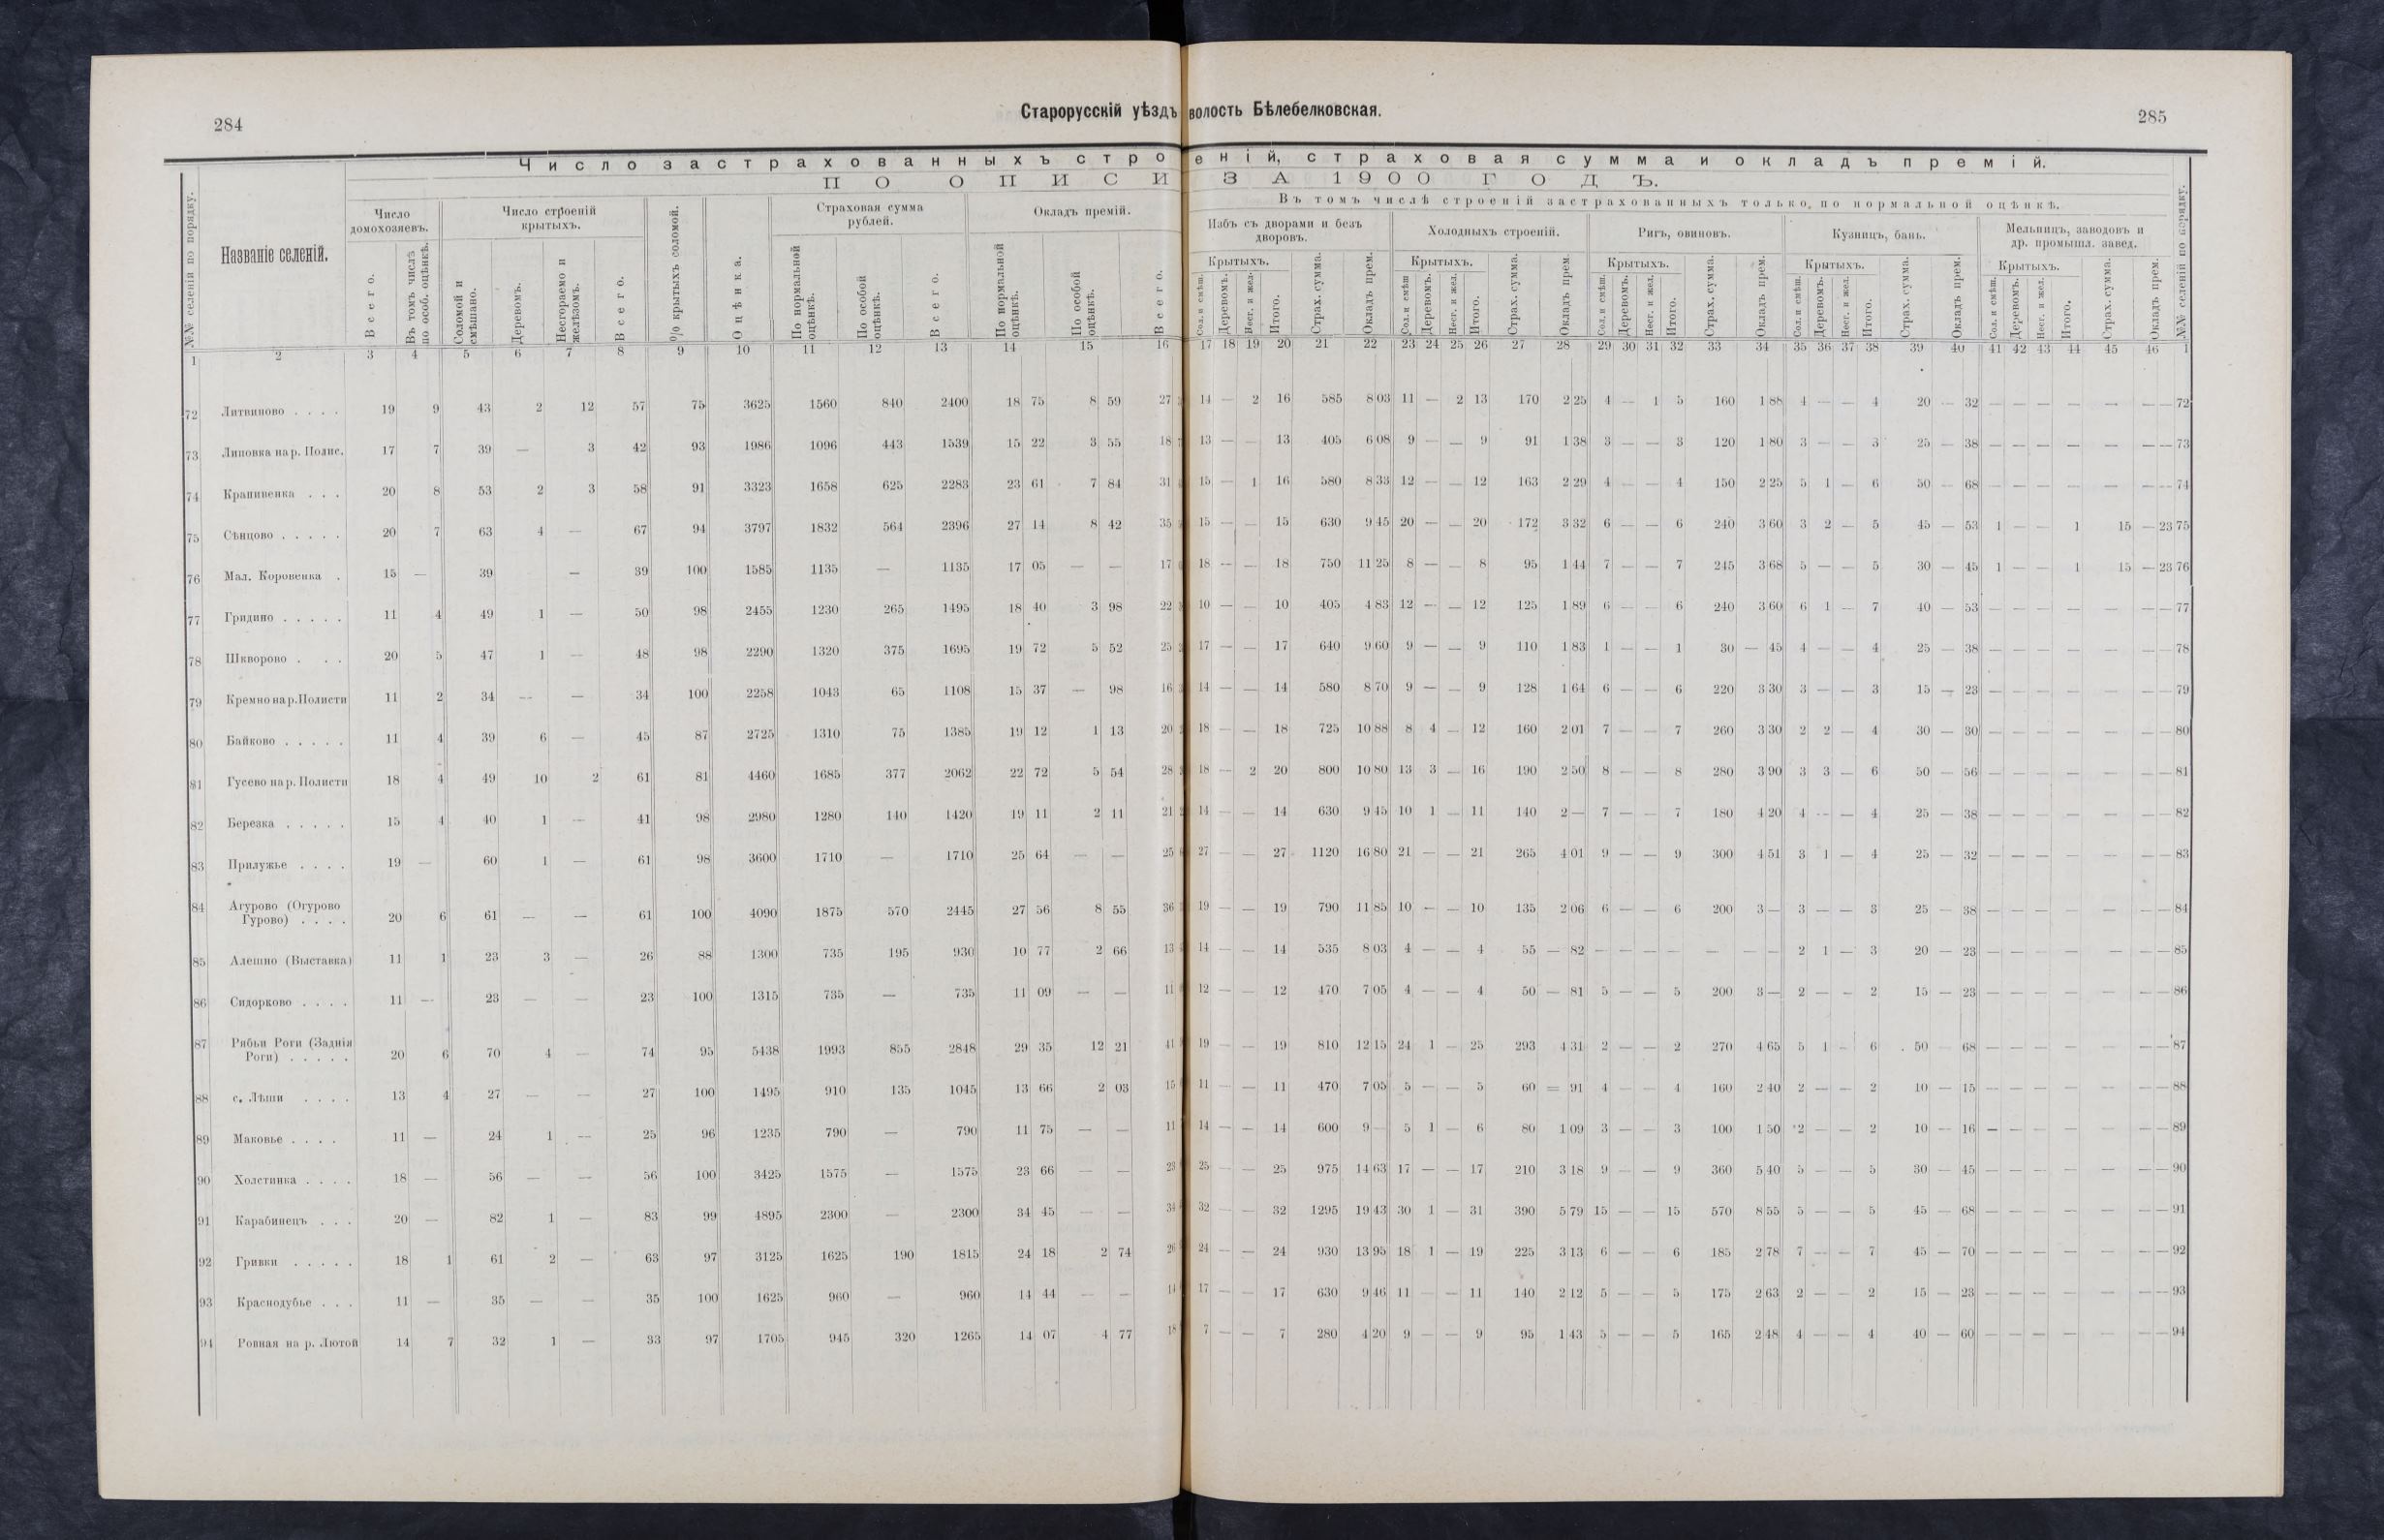 284
Старорусскій уѣздъ
волость Бѣлебелковская.
285
Число застрахованныхъ строеній, страховая сумма и окладъ премій.
ПО ОПИСИ ЗА 1900 ГОДЪ.
Въ томъ числѣ строеній застрахованныхъ только по нормальной оцѣнкѣ.
№№ селеній по порядку.
Названіе селеній.
Число домохозяевъ.
Число строеній крытыхъ.
% крытыхъ соломой.
Оцѣнка.
Страховая сумма рублей.
Окладъ премій.
Избъ съ дворами и безъ дворовъ.
Холодныхъ строеній.
Ригъ, овиновъ.
Кузницъ, бань.
Мельницъ, заводовъ и др. промышл. завед.
№№ селеній по порядку.
Всего.
Въ томъ числѣ по особ. оцѣнкѣ.
Соломой и смѣшано.
Деревомъ.
Несгораемо и желѣзомъ.
Всего.
По нормальной оцѣнкѣ.
По особой оцѣнкѣ.
Всего.
По нормальной оцѣнкѣ.
По особой оцѣнкѣ.
Всего.
Крытыхъ.
Сол. и смѣш.
Деревомъ.
Несг. и жел.
Итого.
Страх. сумма.
Окладъ прем.
Крытыхъ.
Сол. и смѣш
Деревомъ.
Несг. и жел.
Итого.
Страх. сумма.
Окладъ прем.
Крытыхъ.
Сол. и смѣш.
Деревомъ.
Несг. и жел.
Итого.
Страх. сумма.
Окладъ прем.
Крытыхъ.
Сол. и смѣш.
Деревомъ.
Несг. и жел.
Итого.
Страх. сумма.
Окладъ прем.
Крытыхъ.
Сол. и смѣш.
Деревомъ.
Несг. и жел.
Итого.
Страх. сумма.
Окладъ прем.
1 2 3 4 5 6 7 8 9 10 11 12 13 14 15 16 17 18 19 20 21 22 23 24 25 26 27 28 29 30 31 32 33 34 35 36 37 38 39 40 41 42 43 44 45 46 1
72 Литвиново . . . . 19 9 43 2 12 57 75 3625 1560 840 2400 18 75 8 59 27 14 — 2 16 585 8 03 11 — 2 13 170 2 25 4 — 1 5 160 1 88 4 — — 4 20 — 32 — — — — — — — 72
73 Липовка на р. Полис. 17 7 39 — 3 42 93 1986 1096 443 1539 15 22 3 55 18 13 — — 13 405 6 08 9 — — 9 91 1 38 3 — — 3 120 1 80 3 — — 3 25 — 38 — — — — — — — 73
74 Крапивенка . . . 20 8 53 2 3 58 91 3323 1658 625 2283 23 61 7 84 31 15 — 1 16 580 8 33 12 — — 12 163 2 29 4 — — 4 150 2 25 5 1 — 6 50 — 68 — — — — — — — 74
75 Сѣнцово . . . . . 20 7 63 4 — 67 94 3797 1832 564 2396 27 14 8 42 35 15 — — 15 630 9 45 20 — — 20 172 3 32 6 — — 6 240 3 60 3 2 — 5 45 — 53 1 — — 1 15 — 23 75
76 Мал. Коровенка . 15 — 39 — 39 100 1585 1135 — 1135 17 05 — — 17 18 — — 18 750 11 25 8 — — 8 95 1 44 7 — — 7 245 3 68 5 — — 5 30 — 45 1 — — 1 15 — 23 76
77 Гридино . . . . . 11 4 49 1 — 50 98 2455 1230 265 1495 18 40 3 98 22 10 — — 10 405 4 83 12 — — 12 125 1 89 6 — — 6 240 3 60 6 1 — 7 40 — 53 — — — — — — — 77
78 Шкворово . . . 20 5 47 1 — 48 98 2290 1320 375 1695 19 72 5 52 25 17 — — 17 640 9 60 9 — — 9 110 1 83 1 — — 1 30 — 45 4 — — 4 25 — 38 — — — — — — — 78
79 Кремно на р. Полисти 11 2 34 — — 34 100 2258 1043 65 1108 15 37 — 98 16 14 — — 14 580 8 70 9 — — 9 128 1 64 6 — — 6 220 3 30 3 — — 3 15 — 23 — — — — — — — 79
80 Байково . . . . . 11 4 39 6 — 45 87 2725 1310 75 1385 19 12 1 13 20 18 — — 18 725 10 88 8 4 — 12 160 2 01 7 — — 7 260 3 30 2 2 — 4 30 — 30 — — — — — — — 80
81 Гусево на р. Полисти 18 4 49 10 2 61 81 4460 1685 377 2062 22 72 5 54 28 18 — 2 20 800 10 80 13 3 — 16 190 2 50 8 — — 8 280 3 90 3 3 — 6 50 — 56 — — — — — — — 81
82 Березка . . . . . 15 4 40 1 — 41 98 2980 1280 140 1420 19 11 2 11 21 14 — — 14 630 9 45 10 1 — 11 140 2 — 7 — — 7 180 4 20 4 — — 4 25 — 38 — — — — — — — 82
83 Прилужье . . . . 19 — 60 1 — 61 98 3600 1710 — 1710 25 64 — — 25 27 — — 27 1120 16 80 21 — — 21 265 4 01 9 — — 9 300 4 51 3 1 — 4 25 — 32 — — — — — — — 83
84 Агурово (Огурово
Гурово) . . . . 20 6 61 — — 61 100 4090 1875 570 2445 27 56 8 55 36 19 — — 19 790 11 85 10 — — 10 135 2 06 6 — — 6 200 3 — 3 — — 3 25 — 38 — — — — — — — 84
85 Алешно (Выставка) 11 1 23 3 — 26 88 1300 735 195 930 10 77 2 66 13 14 — — 14 535 8 03 4 — — 4 55 — 82 — — — — — — — 2 1 — 3 20 — 23 — — — — — — — 85
86 Сидорково . . . . 11 — 23 — — 23 100 1315 735 — 735 11 09 — — 11 12 — — 12 470 7 05 4 — — 4 50 — 81 5 — — 5 200 3 — 2 — — 2 15 — 23 — — — — — — — 86
87 Рябьи Роги (Заднія
Роги) . . . . . 20 6 70 4 — 74 95 5438 1993 855 2848 29 35 12 21 41 19 — — 19 810 12 15 24 1 — 25 293 4 31 2 — — 2 270 4 65 5 1 — 6 50 68 — — — — — — — 87
88 с. Лѣши . . . . 13 4 27 — — 27 100 1495 910 135 1045 13 66 2 03 15 11 — — 11 470 7 05 5 — — 5 60 = 91 4 — — 4 160 2 40 2 — — 2 10 — 15 — — — — — — — 88
89 Маковье . . . . 11 — 24 1 — 25 96 1235 790 — 790 11 75 — — 11 14 — — 14 600 9 — 5 1 — 6 80 1 09 3 — — 3 100 1 50 2 — — 2 10 — 16 — — — — — — — 89
90 Холстинка . . . . 18 — 56 — — 56 100 3425 1575 — 1575 23 66 — — 23 25 — — 25 975 14 63 17 — — 17 210 3 18 9 — — 9 360 5 40 5 — — 5 30 — 45 — — — — — — — 90
91 Карабинецъ . . . 20 — 82 1 — 83 99 4895 2300 — 2300 34 45 — — 34 32 — — 32 1295 19 43 30 1 — 31 390 5 79 15 — — 15 570 8 55 5 — — 5 45 — 68 — — — — — — — 91
92 Гривки . . . . . 18 1 61 2 — 63 97 3125 1625 190 1815 24 18 2 74 26 24 — — 24 930 13 95 18 1 — 19 225 3 13 6 — — 6 185 2 78 7 — — 7 45 — 70 — — — — — — — 92
93 Краснодубье . . . 11 — 35 — — 35 100 1625 960 — 960 14 44 — — 14 17 — — 17 630 9 46 11 — — 11 140 2 12 5 — — 5 175 2 63 2 — — 2 15 — 23 — — — — — — — 93
94 Ровная на р. Лютой 14 7 32 1 — 33 97 1705 945 320 1265 14 07 4 77 18 7 — — 7 280 4 20 9 — — 9 95 1 43 5 — — 5 165 2 48 4 — — 4 40 — 60 — — — — — — — 94